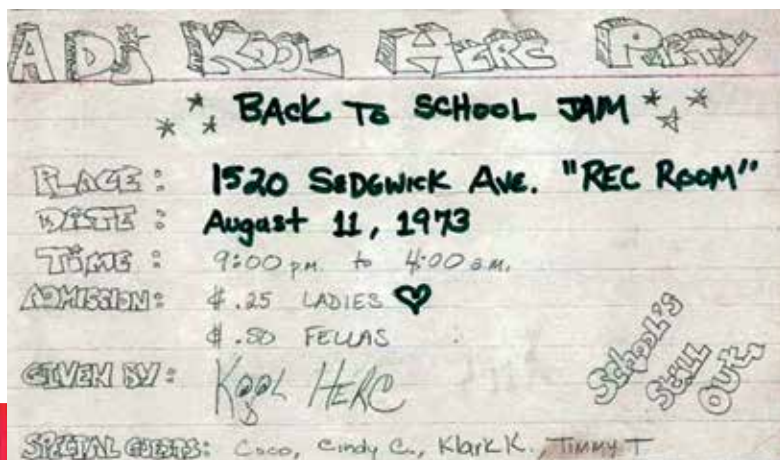 A DJ KOOL HERC PARTY
BACK TO SCHOOL JAM
PLACE: 1520 SEDGWICK AVE. "REC ROOM"
DATE: August 11, 1973
TIME: 9:00 pm. to 4:00 am.
ADMISSION: $.25 LADIES
$.50 FELLAS
School's
Still
Out.
GIVEN BY: KOOL HERC
SPECIAL GUESTS: Coco, Cindy C., Klark K., Timmy T